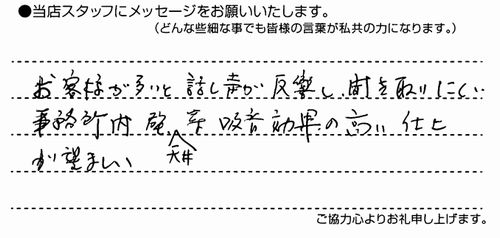 ●当店スタッフにメッセージをお願いいたします。
（どんな些細な事でも皆様の言葉が私共の力になります。）
お客様が多いと話し声が反響し、聞き取りにくい
事務所内 壁 等 吸音効果の高い 仕上
天井
が望ましい
ご協力心よりお礼申し上げます。